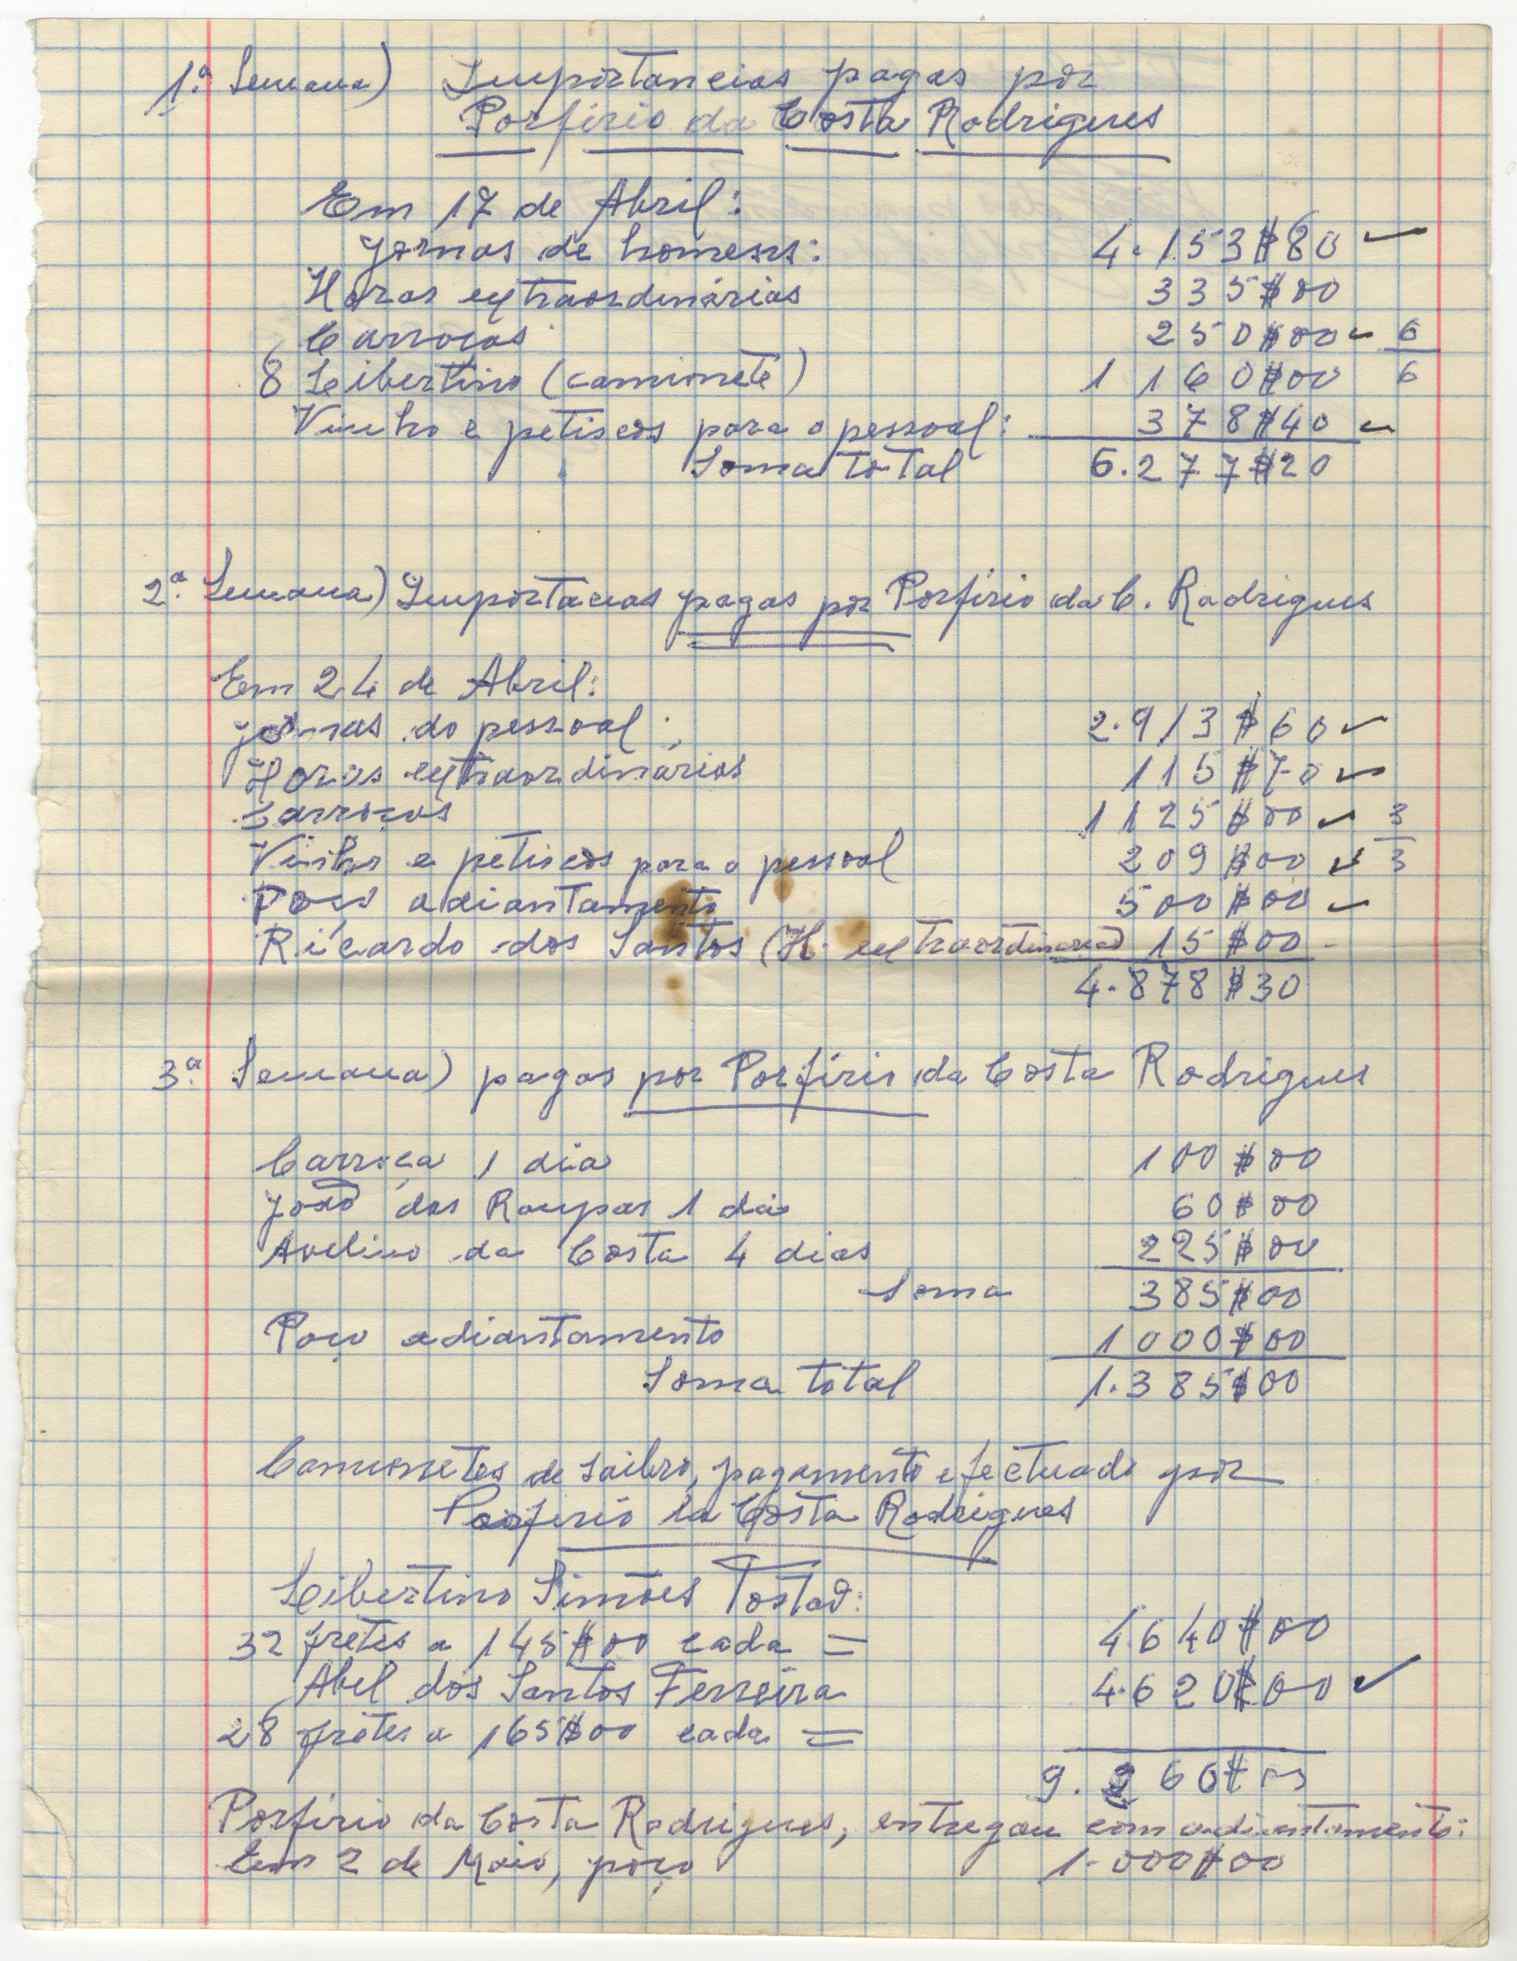 1.ª Semana) Importancias pagas por
Porfirio da Costa Rodrigues
Em 17 de Abril:
Jornas de homens: 4.153$80
Horas extraordinárias 335$00
Carroças 250$00 6
8 Libertino (camionete) 1160$00 6
Vinho e petiscos para o pessoal: 378$40
Soma total 6.277$20
2.ª Semana) Importacias pagas por Porfirio da C. Rodrigues
Em 24 de Abril:
Jornas do pessoal: 2.913$60
Horas extraordinárias 115$70
Carroças 1125$00 3
Vinho e petiscos para o pessoal 209$00 3
Poço adiantamento 500$00
Ricardo dos Santos (H. extraordinarias) 15$00
4.878$30
3.ª Semana) pagas por Porfirio da Costa Rodrigues
Carroça 1 dia 100$00
João das Roupas 1 dia 60$00
Avelino da Costa 4 dias 225$00
Soma 385$00
Poço adiantamento 1000$00
Soma total 1.385$00
Camionetes de saibro, pagamento efectuado por
Porfirio da Costa Rodrigues
Libertino Simões Tostad:
32 fretes a 145$00 cada = 4.640$00
Abel dos Santos Ferreira 4.620$00
28 fretes a 165$00 cada =
9.260$00
Porfirio da Costa Rodrigues, entregou com adiantamento:
Em 2 de Maio, poço 1.000$00